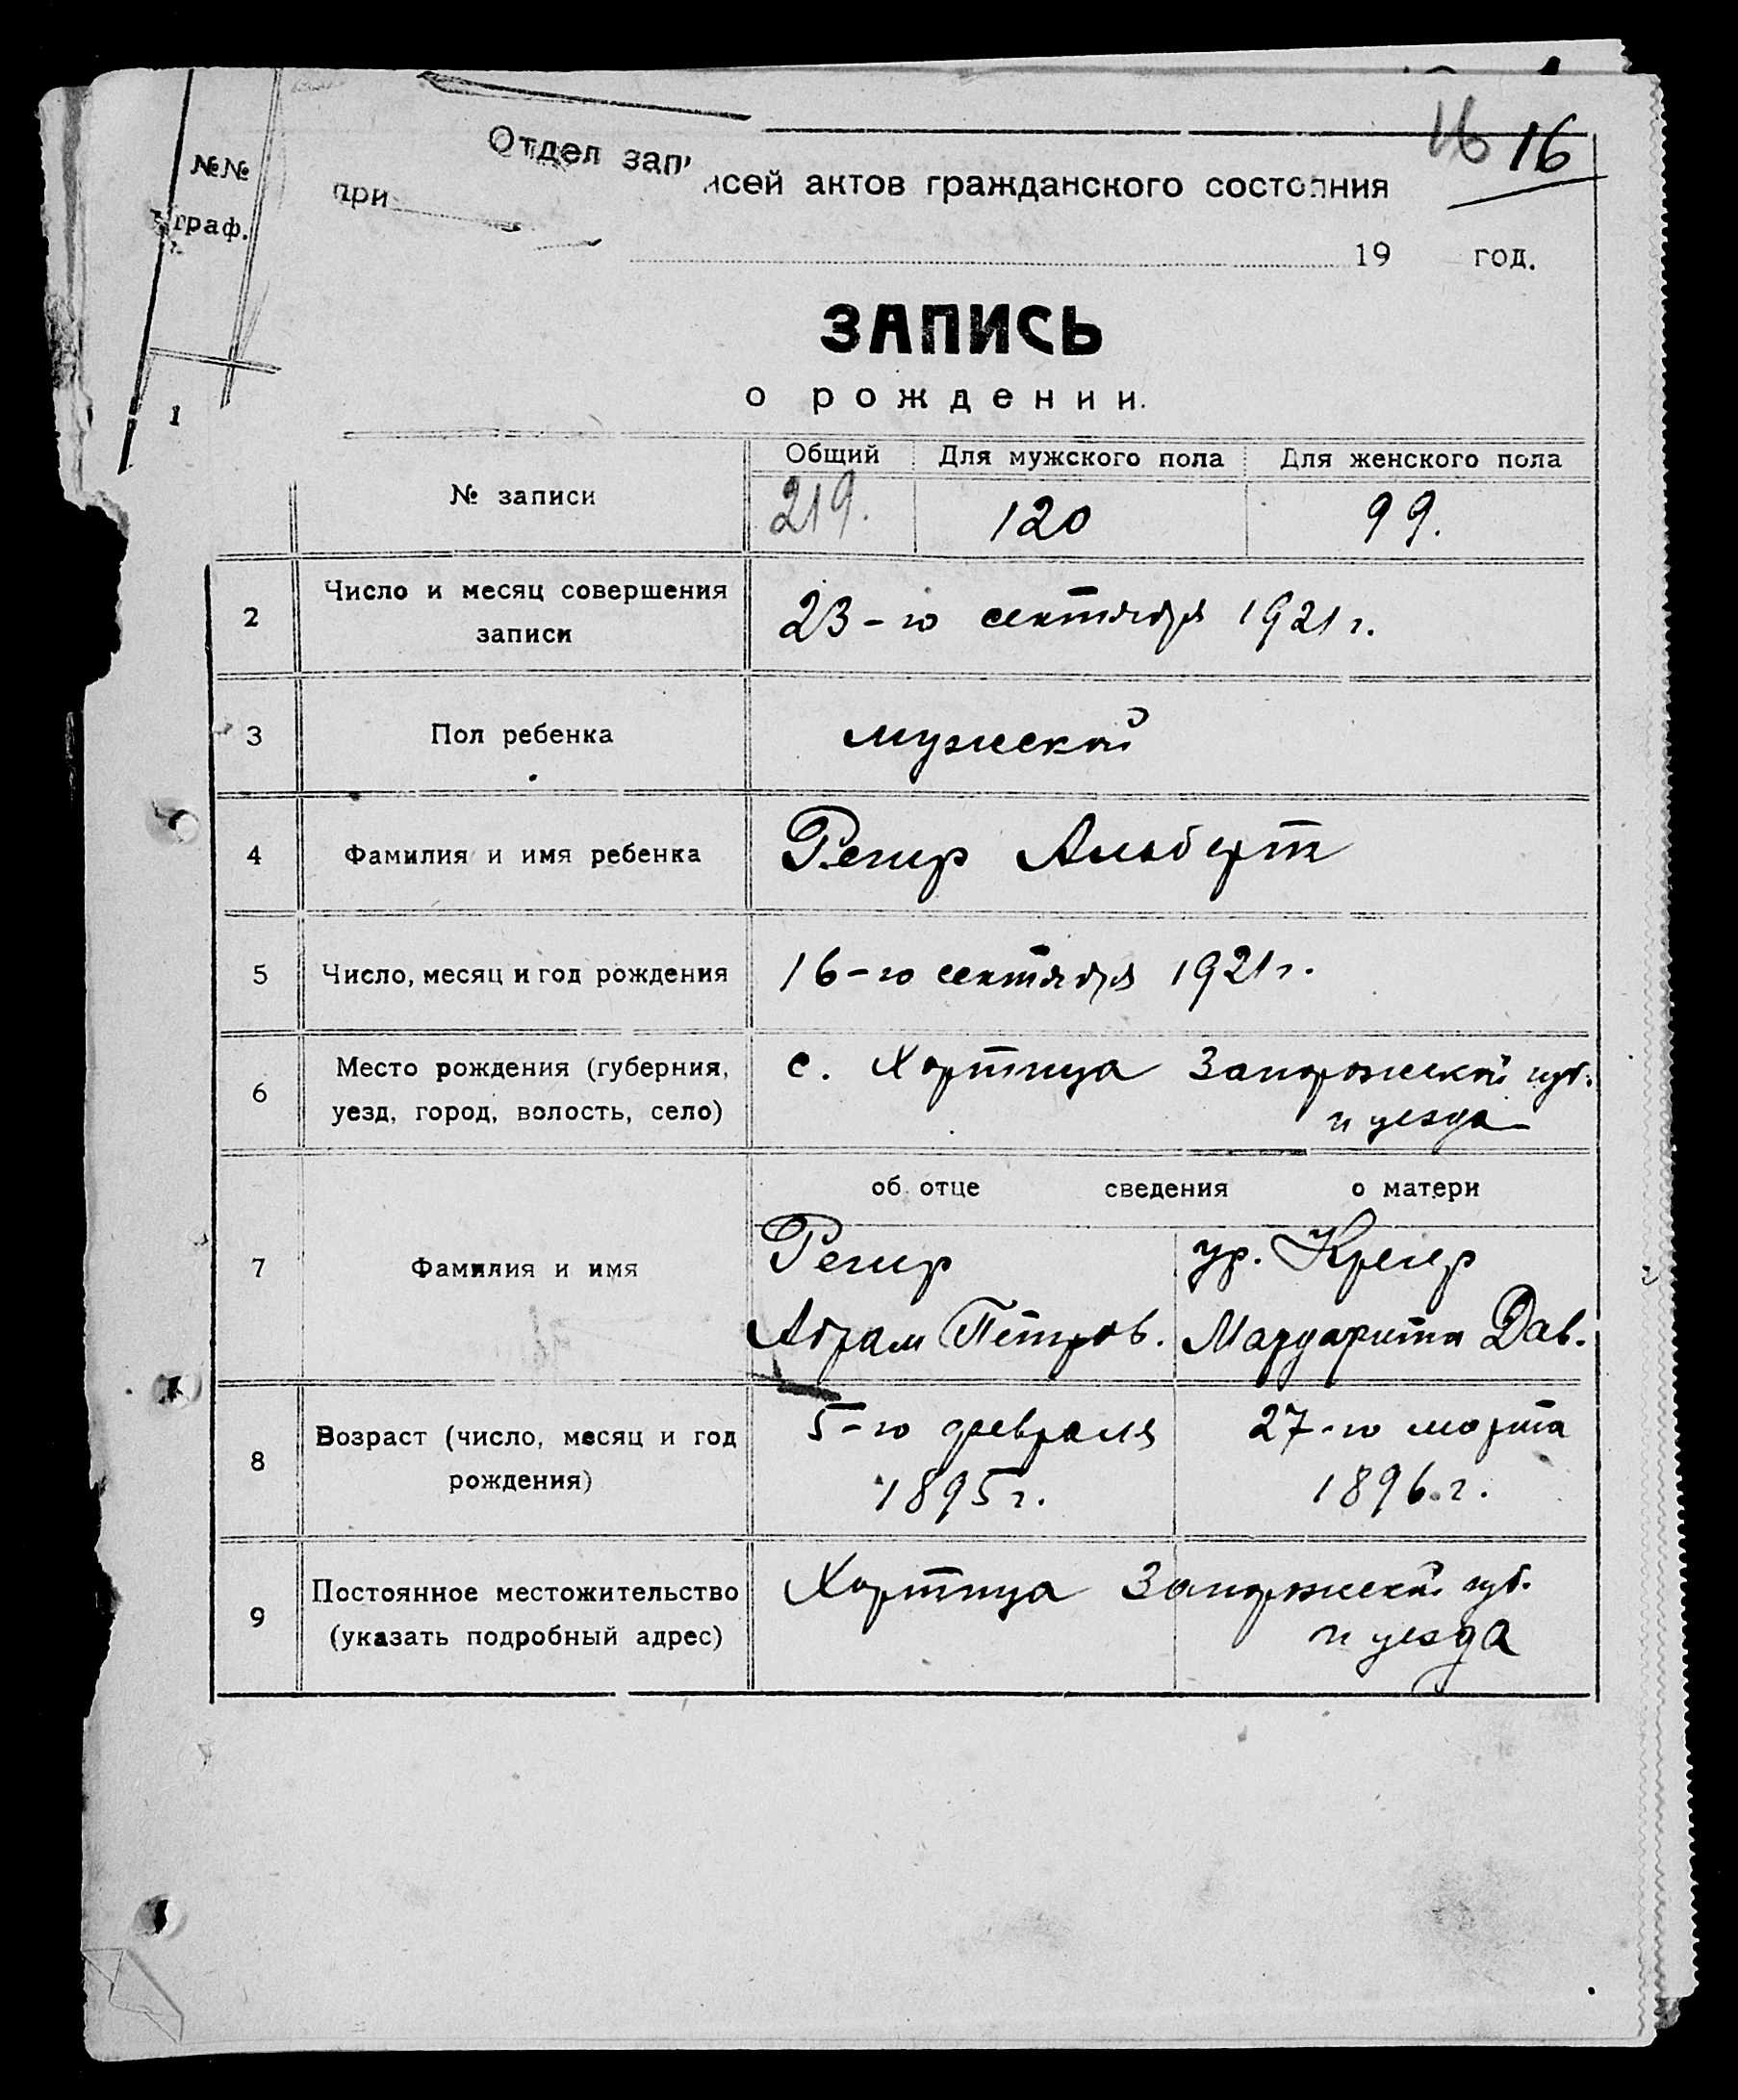 16 16
№№
граф.
Отдел записей актов гражданского состояния
при
19 год.
ЗАПИСЬ
о рождении.
1
Общий Для мужского пола Для женского пола
№ записи 219. 120 99.
2 Число и месяц совершения записи
23-го сентября 1921 г.
3 Пол ребенка мужской
4 Фамилия и имя ребенка Регир Альберт
5 Число, месяц и год рождения 16-го сентября 1921 г.
6 Место рождения (губерния, уезд, город, волость, село)
с. Хортица Запорожской губ.
и уезда
об отце сведения о матери
7 Фамилия и имя
Регир ур. Крегер
Абрам Петров. Маргарита Дав.
8 Возраст (число, месяц и год рождения)
5-го февраля 27-го марта
1895 г. 1896 г.
9 Постоянное местожительство (указать подробный адрес)
Хортица Запорожской губ.
и уезда